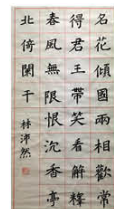 名花傾國兩相歡常
得君王帶笑看解釋
春風無限恨沉香亭
北倚闌干
林沛然